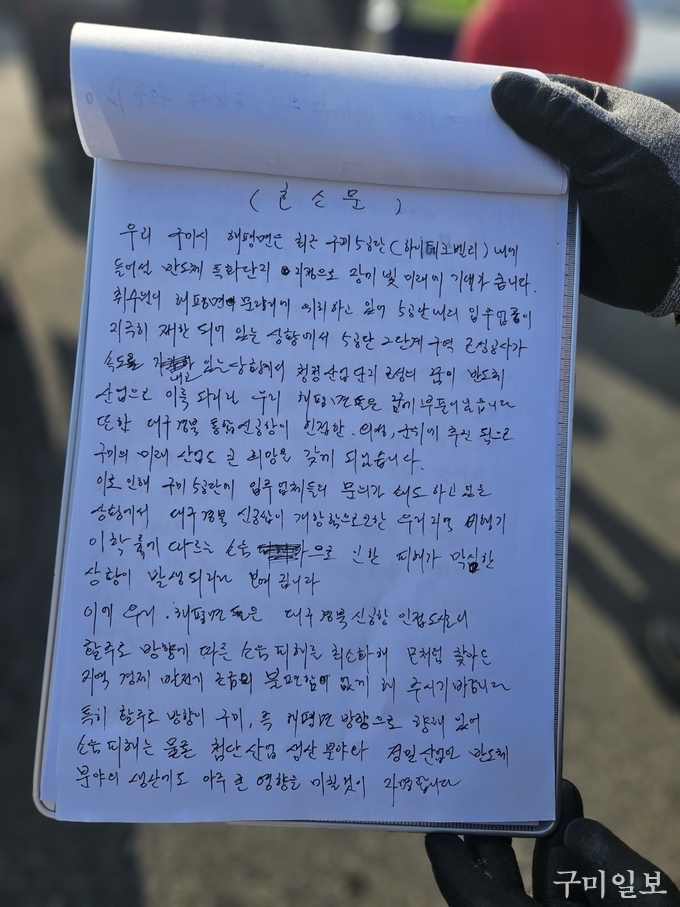 ( 호 소 문 )
우리 구미시 해평면은 최근 구미 5공단 (하이테크밸리) 내에
들어선 반도체 특화단지 지정으로 장미 빛 미래에 기대가 큽니다.
취수원이 해평면 문량리에 위치하고 있어 5공단내의 입주업종이
지극히 제한 되어 있는 상황에서 5공단 2단계 구역 조성공사가
속도를 내고 있는 상황에서 청정산업단지 조성의 꿈이 반도체
산업으로 이룩 되리라 우리 해평면민들은 꿈에 부풀어 있습니다
또한 대구경북 통합신공항이 인접한 의성, 군위에 추진 됨으로
구미의 미래 산업도 큰 희망을 갖게 되었습니다.
이로 인해 구미 5공단에 입주 업체들의 문의가 쇄도 하고 있는
상황에서 대구경북 신공항이 개항함으로 인한 우리지역 비행기
이착륙에 따르는 소음 으로 인한 피해가 막심한
상황이 발생되리라 보여 집니다
이에 우리 해평면민들은 대구경북신공항 인접도시의
활주로 방향에 따른 소음 피해를 최소화해 모처럼 찾아온
지역 경제 발전에 소음의 불편함이 없게 해 주시기 바랍니다
특히 활주로 방향이 구미, 즉 해평면 방향으로 향해 있어
소음 피해는 물론 첨단산업 생산 분야와 정밀산업인 반도체
분야의 생산에도 아주 큰 영향을 미칠것이 자명합니다
구미일보